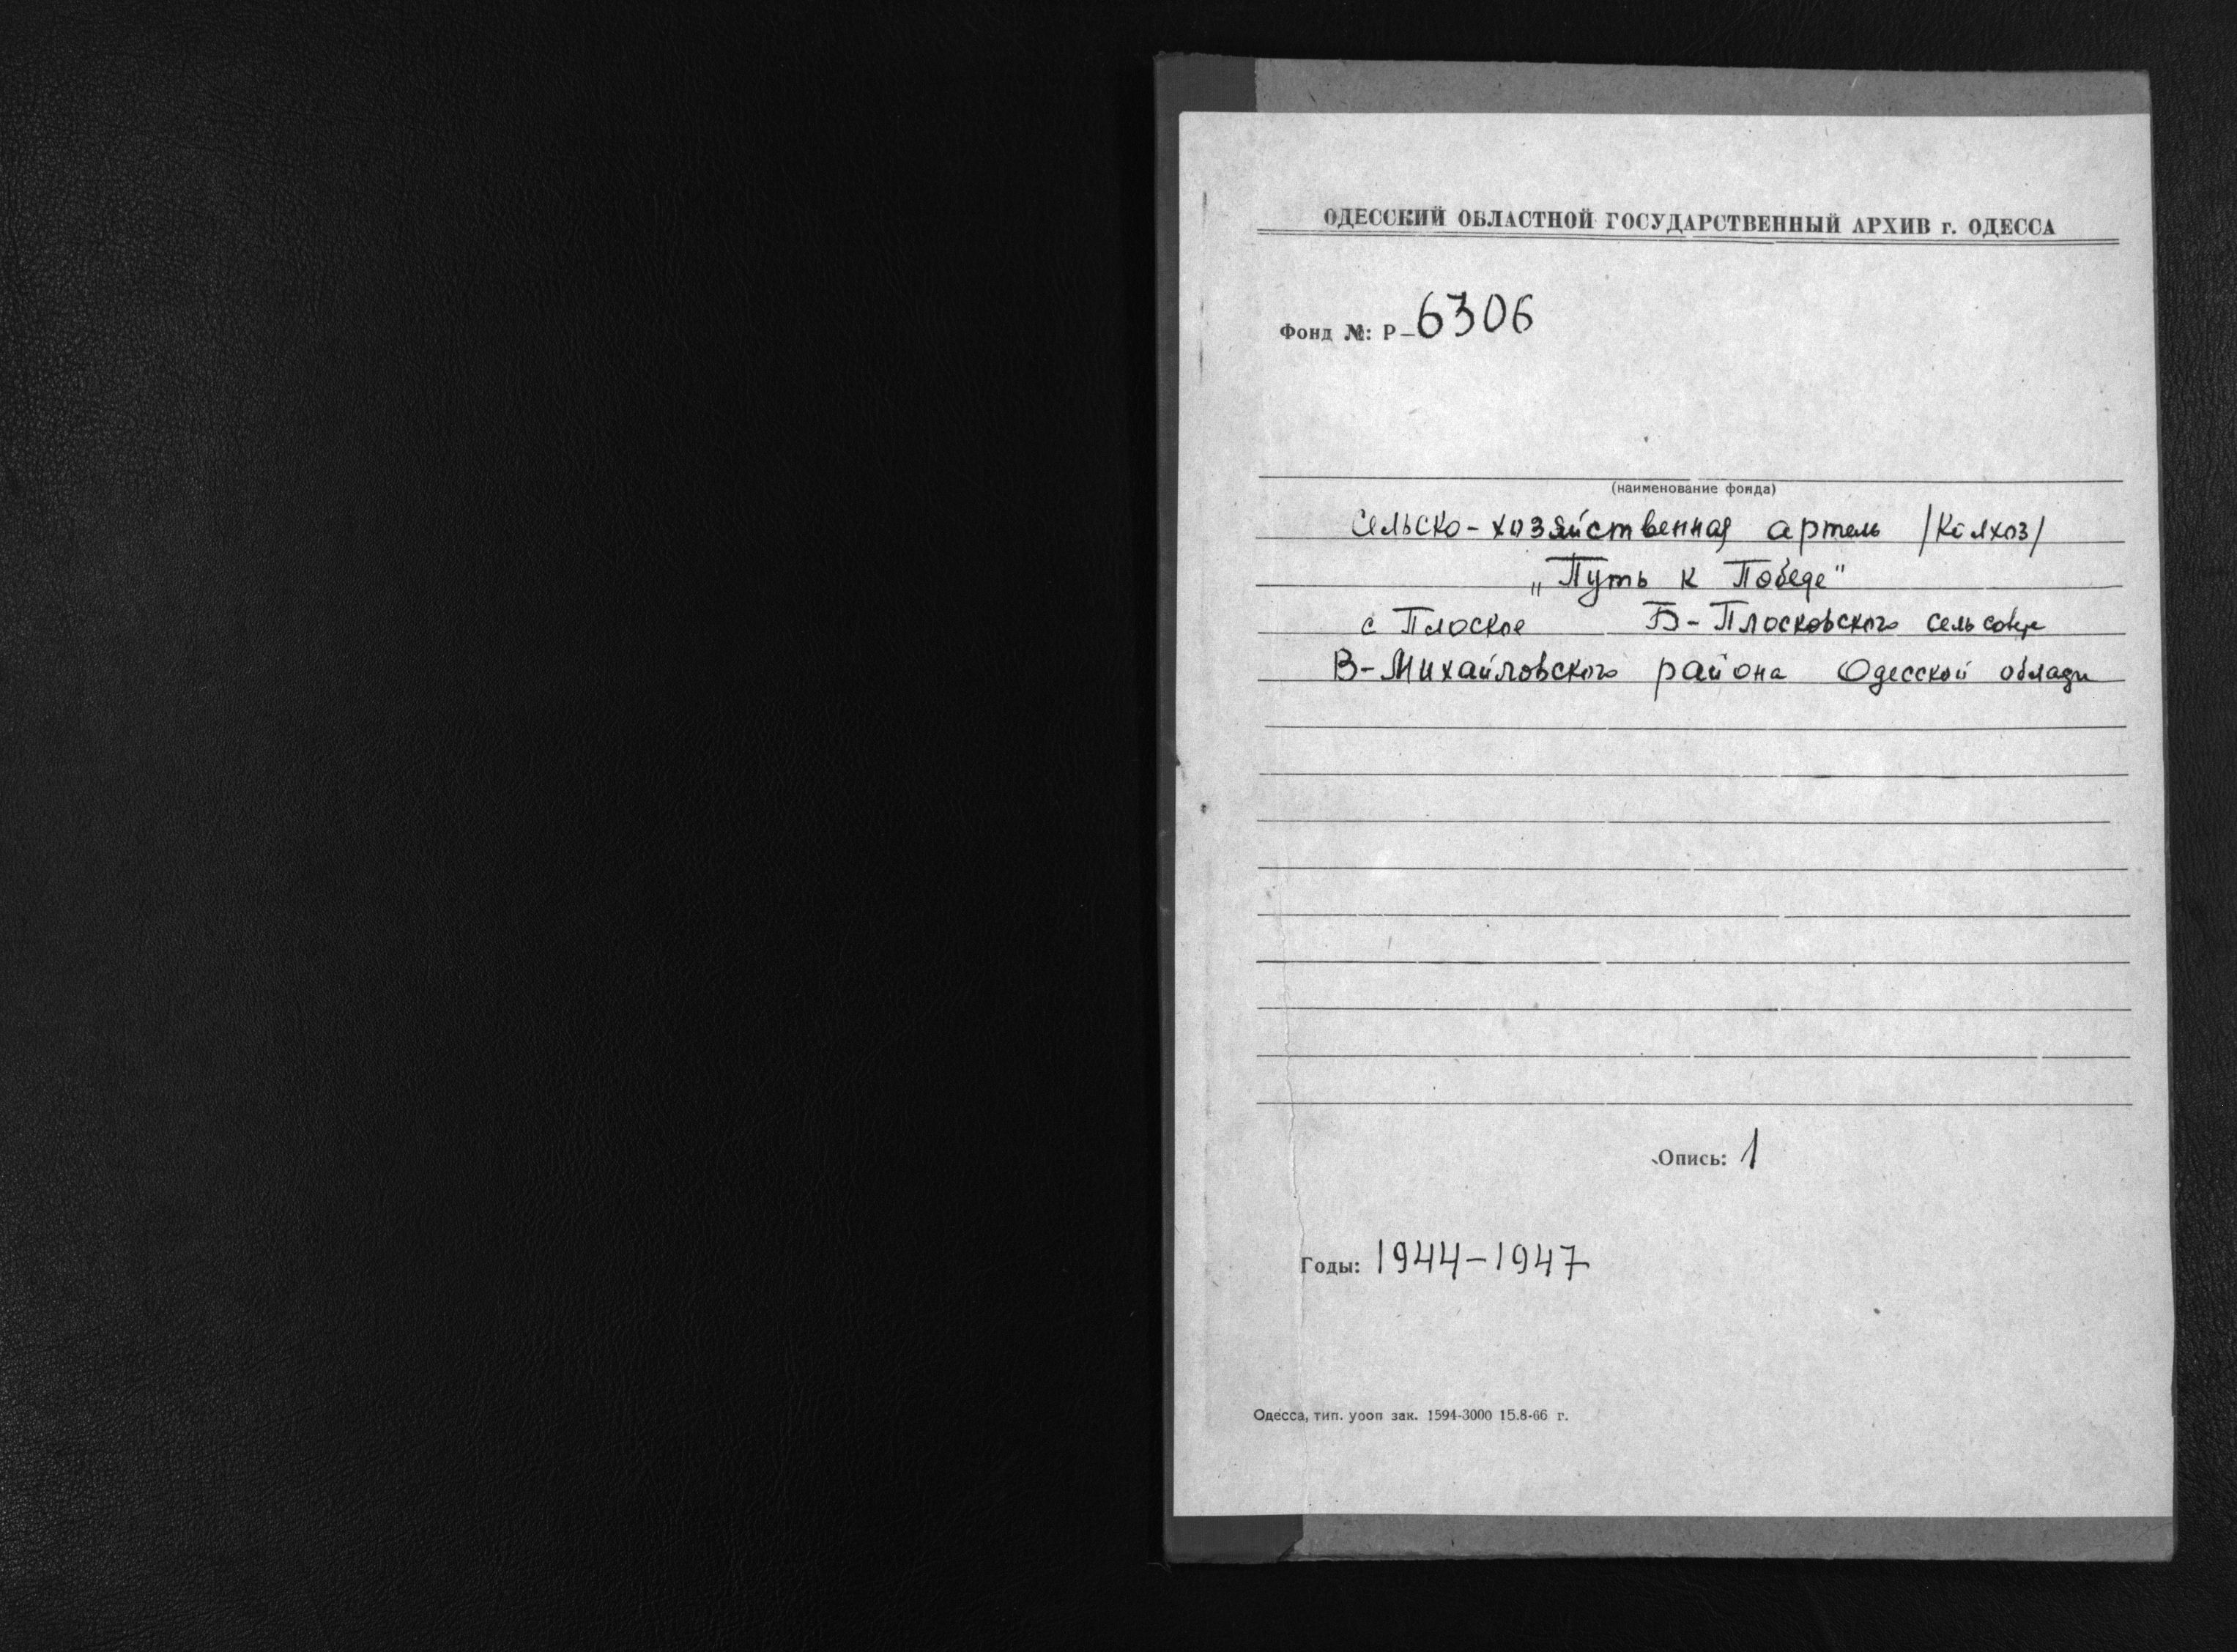 ОДЕССКИЙ ОБЛАСТНОЙ ГОСУДАРСТВЕННЫЙ АРХИВ г. ОДЕССА
Фонд №: Р-6306
(наименование фонда)
Сельско-хозяйственная артель /Колхоз/
„Путь к Победе"
с Плоское Б-Плосковского сельсовета
В-Михайловского района Одесской области
Опись: 1
Годы: 1944-1947
Одесса, тип. уооп зак. 1594-3000 15.8-66 г.